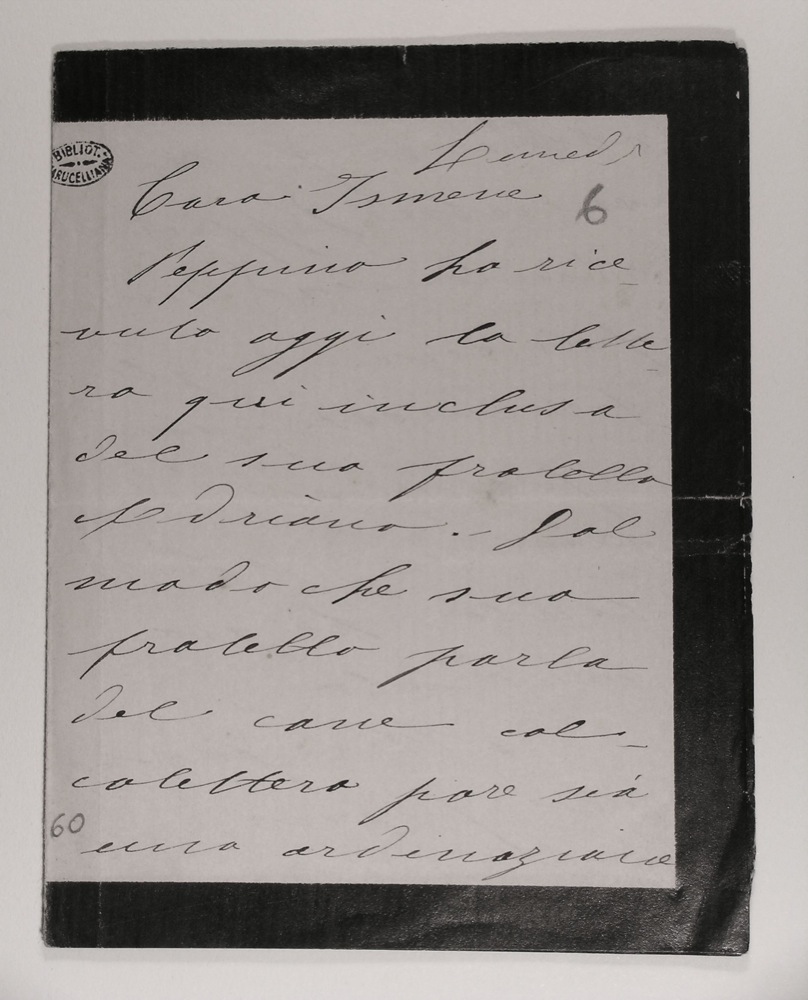 Lunedì
BIBLIOT.
MARUCELLIANA
Cara Ismene
6
Peppino ha rice-
vuto aggi la lette-
ra qui inclusa
del suo fratello
Adriano. - Dal
modo che suo
fratello parla
del cane col-
la lettera pare sia
60
una ordinazione